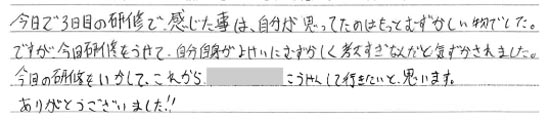 今日で3日目の研修で、感じた事は、自分が思ってたのはもっとむずかしい物でした。
ですが、今回研修をうけて、自分自身がよけいにむずかしく考えすぎなんだと気ずかされました。
今回の研修をいかして、これから こうけんして行きたいと、思います。
ありがとうございました!!